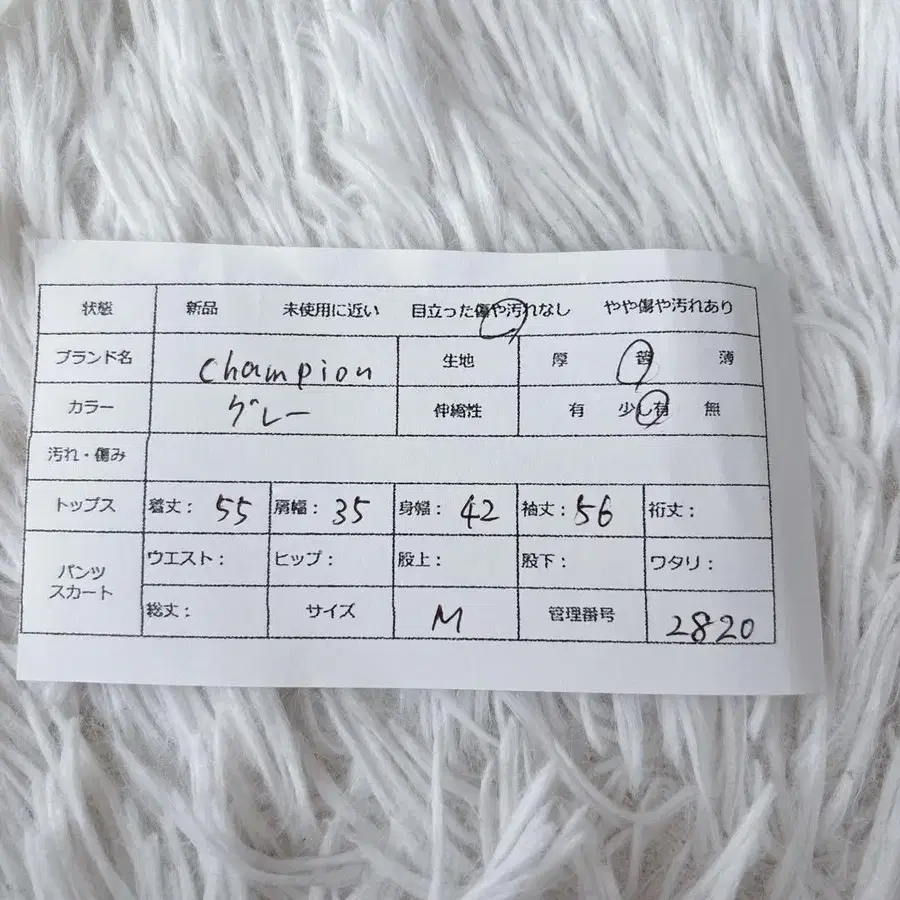 状態 新品 未使用に近い 目立った傷や汚れなし やや傷や汚れあり
ブランド名 Champion 生地 厚 普 薄
カラー グレー 伸縮性 有 少し有 無
汚れ・傷み
トップス 着丈： 55 肩幅： 35 身幅： 42 袖丈： 56 裄丈：
パンツ スカート ウエスト： ヒップ： 股上： 股下： ワタリ：
総丈： サイズ M 管理番号 2820